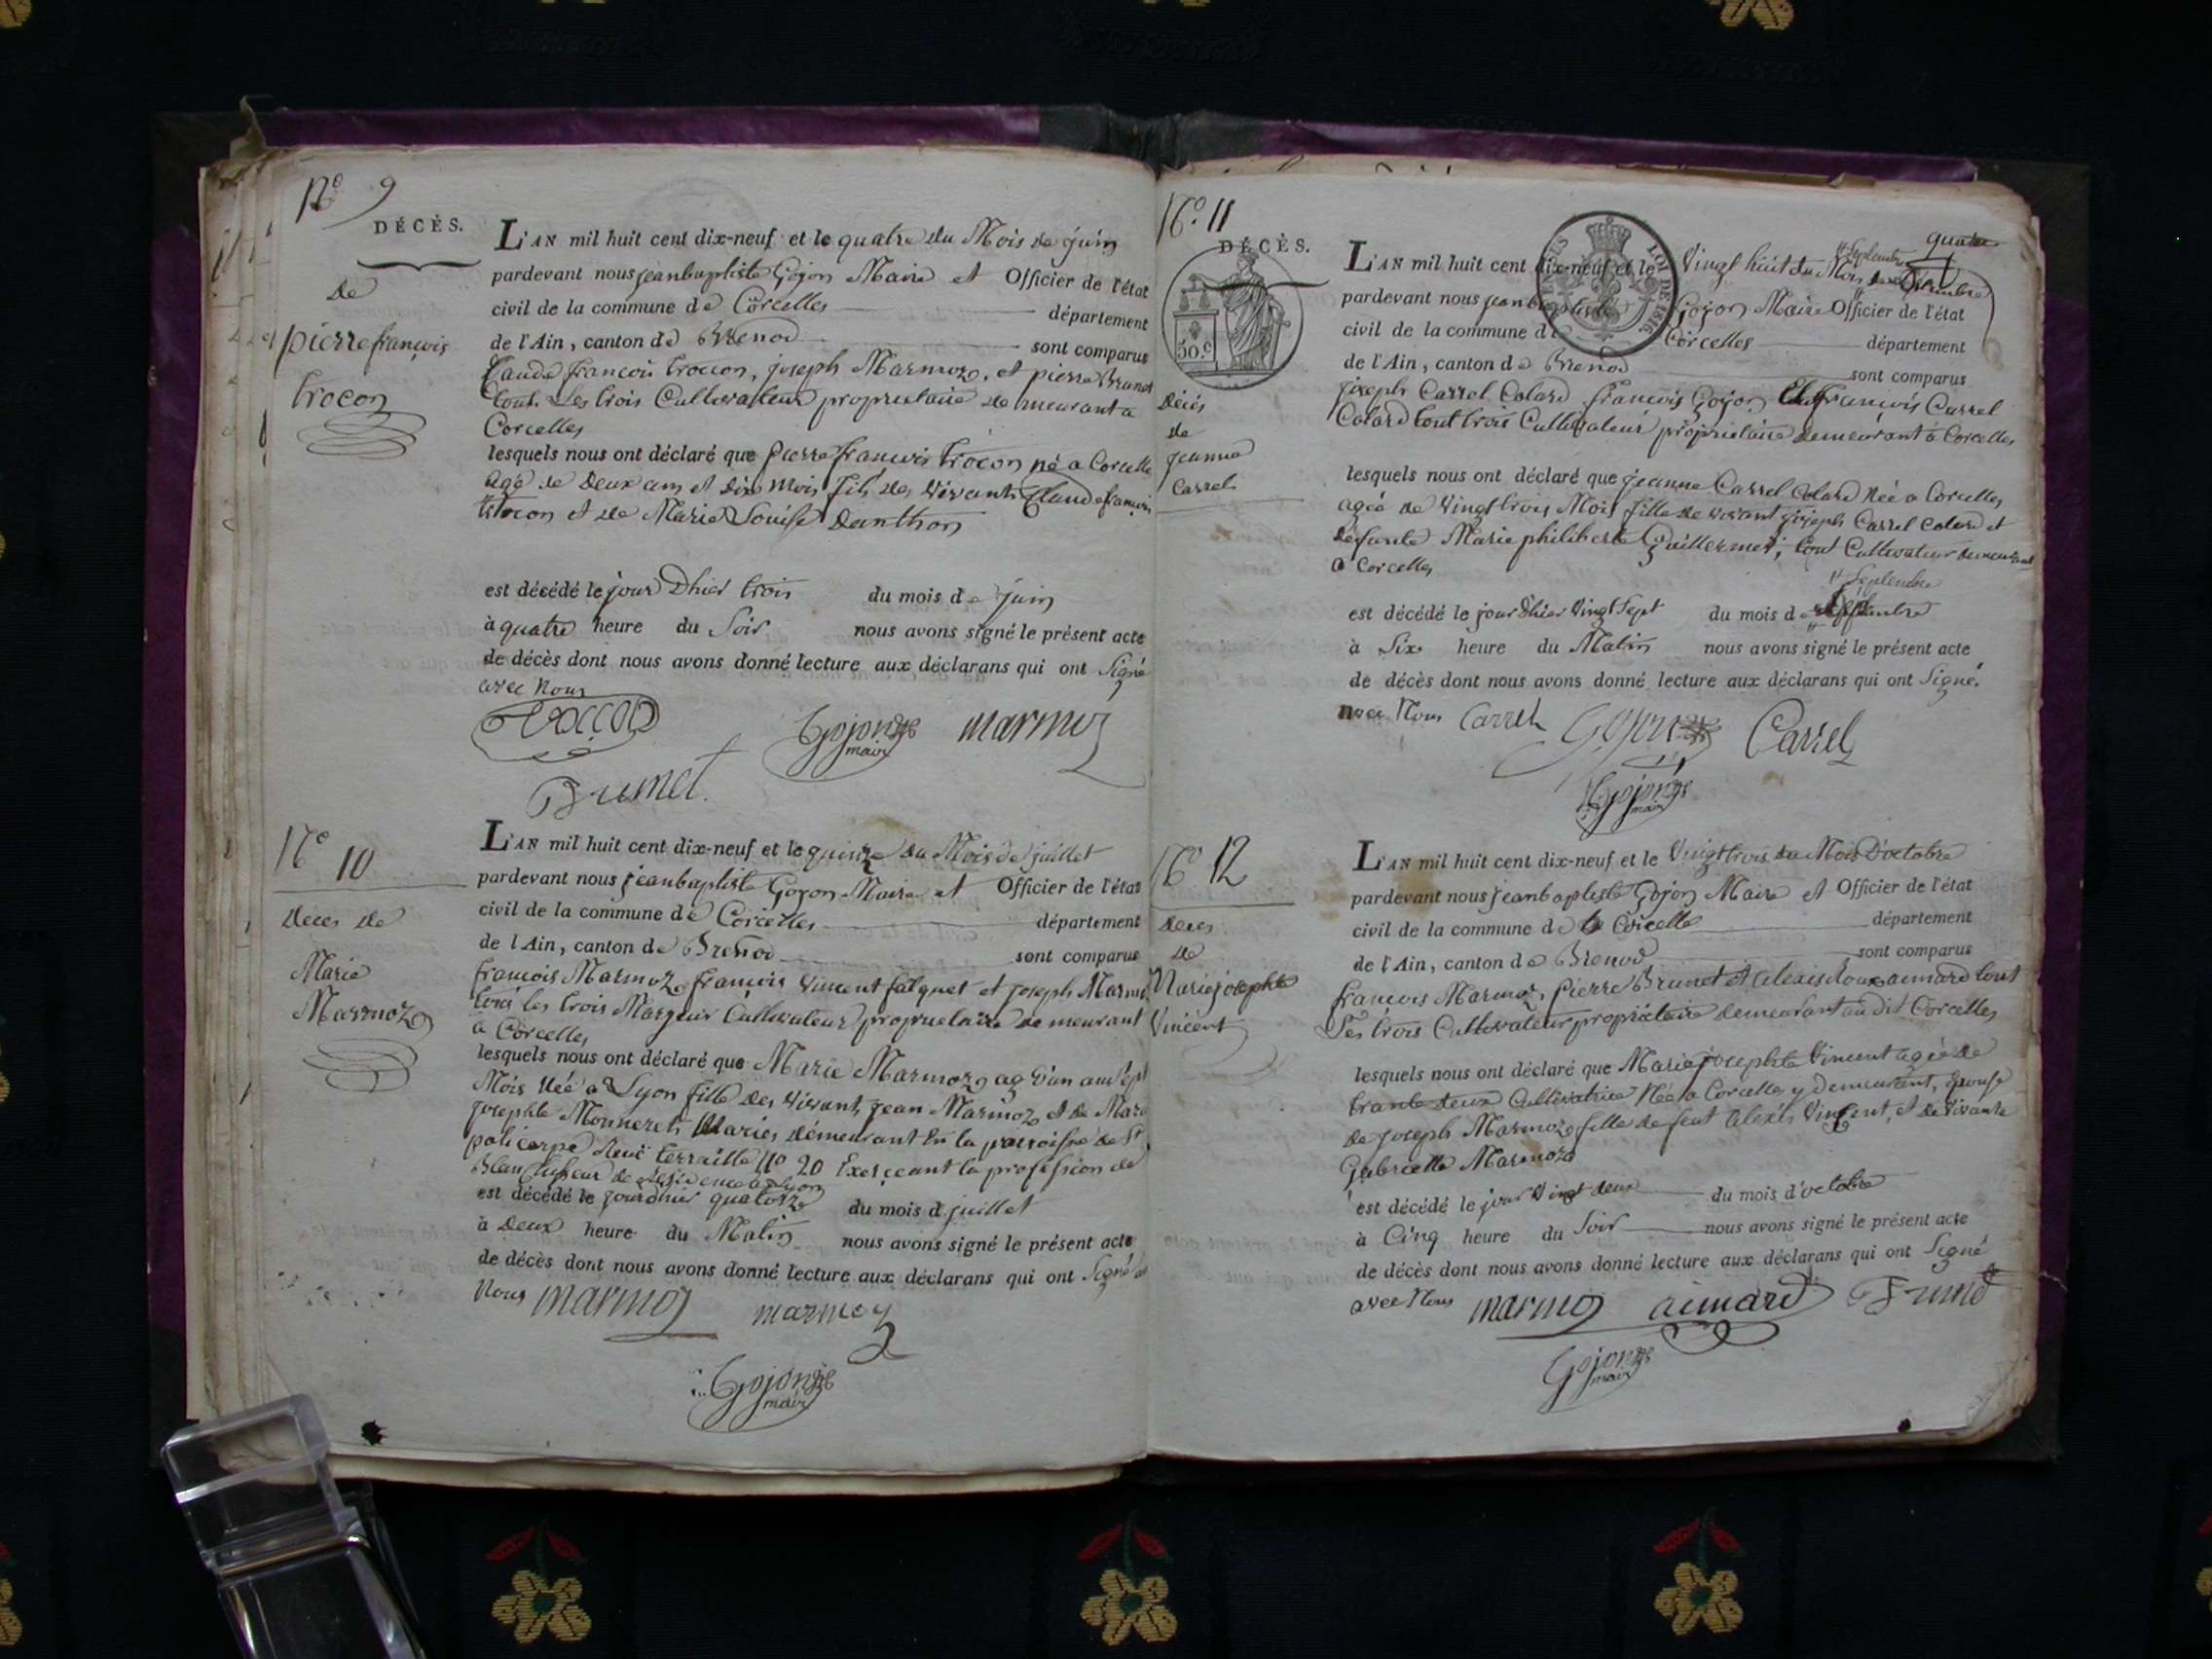 N.o 9
DÉCÈS.
de
pierre françois
trocon
L'AN mil huit cent dix-neuf et le quatre du Mois de juin
pardevant nous jeanbaptiste Gojon Maire et Officier de l'état
civil de la commune de Corcelles département
de l'Ain, canton de Brenod sont comparus
Claude françois trocon, joseph Marmoz, et pierre Brunet
tout Les trois Cultivateur proprietaire demeurant a
Corcelles
lesquels nous ont déclaré que pierre françois trocon né a Corcelle
agé de Deux ans et dix mois fils des vivants Claude françois
trocon et de Marie Louise Danthon
est décédé le jour Dhier trois du mois de juin
à quatre heure du Soir nous avons signé le présent acte
de décès dont nous avons donné lecture aux déclarans qui ont Signé
avec nous
Trocon Gojon maire marmoz
Brunet
N.o 10
Deces de
Marie
Marmoz
L'AN mil huit cent dix-neuf et le quinze du Mois de juillet
pardevant nous jeanbaptiste Gojon Maire et Officier de l'état
civil de la commune de Corcelles département
de l'Ain, canton de Brenod sont comparus
francois Marmoz françois Vincent falquet et joseph Marmoz
tous les trois Cultivateur proprietaire demeurant
à Corcelles
lesquels nous ont déclaré que Marie Marmoz ag d'un an sept
Mois Née a Lyon fille des vivant jean Marmoz et de Marie
josephte Monneret Mariés démeurant En la parroisse de St
policarpe Ruë terraille No 20 Exerceant la profession de
Blanchisseur de residence a Lyon
est décédé le jour dhier quatorze du mois d juillet
à Deux heure du Matin nous avons signé le présent acte
de décès dont nous avons donné lecture aux déclarans qui ont Signé
Nous marmoz marmoz
Gojon maire
N.o 11
DÉCÈS.
50.c
LOI DE 1816
Décès
de
jeanne
Carrel
L'AN mil huit cent dix-neuf et le Vingt huit du Mois de Septembre
pardevant nous jeanbaptiste Gojon Maire Officier de l'état
civil de la commune de Corcelles département
de l'Ain, canton de Brenod sont comparus
joseph Carrel Colard françois Gojon Et françois Carrel
Colard tout trois Cultivateur proprietaire demeurant à Corcelles
lesquels nous ont déclaré que jeanne Carrel Colard Née a Corcelles
agée de Vingt trois Mois fille de vivant joseph Carrel Colard et
défunte Marie philiberte Guillermet, tout Cultivateur demeurant
a Corcelles
est décédé le jour dhier Vingt Sept du mois de Septembre
à Six heure du Matin nous avons signé le présent acte
de décès dont nous avons donné lecture aux déclarans qui ont Signé.
avec Nous Carrel Gojon Carrel
Gojon maire
N.o 12
Deces
de
Marie josephte
Vincent
L'AN mil huit cent dix-neuf et le Vingt trois du Mois D'octobre
pardevant nous jeanbaptiste Gojon Maire et Officier de l'état
civil de la commune de Corcelle département
de l'Ain, canton de Brenod sont comparus
francois Marmoz, Pierre Brunet et alexis Roux aimard tout
Les trois Cultivateur propriétaire demeurant au dit Corcelles
lesquels nous ont déclaré que Marie josephte Vincent agée de
trante deux Cultivatrice Née a Corcelles y demeurent, Epouse
de joseph Marmoz fille de feut Alexis Vincent, et de Vivante
Gabrielle Marmoz
est décédé le jour Vingt deux du mois d'octobre
à Cinq heure du Soir nous avons signé le présent acte
de décès dont nous avons donné lecture aux déclarans qui ont Signé
avec Nous marmoz aimard Brunet
Gojon maire